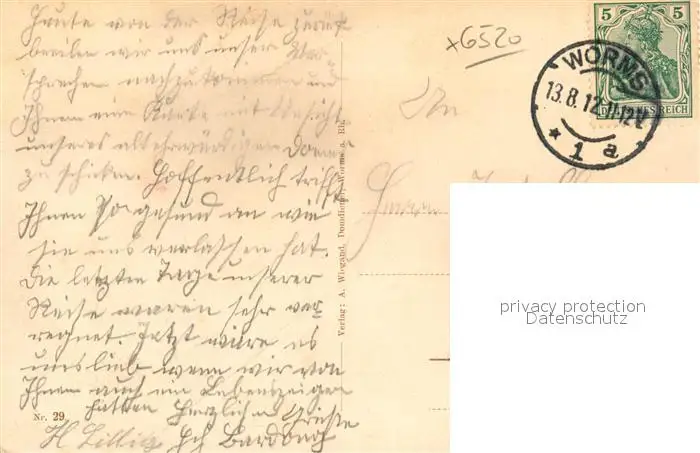 Heute von der Reise zurück
beeilen wir uns unser Ver-
sprechen nachzukommen und
Ihnen eine Karte mit Ansicht
unseres altehrwürdigen Domes
zu schicken. Hoffentlich trifft
Ihnen so gesund an wie
sie uns verlassen hat.
Die letzten Tage unserer
Reise waren sehr ver
regnet. Jetzt wäre es
uns lieb wenn wir von
Ihnen auch ein Lebenszeigen
hätten Herzliche Grüße
H Lillig
Nr. 29
Verlag: A. Wiegand, Domdiener, Worms a. Rh.
x6520
An
Herrn
5 5
DEUTSCHES REICH
WORMS
13.8.12 11-12V
* 1 a *
privacy protection
Datenschutz